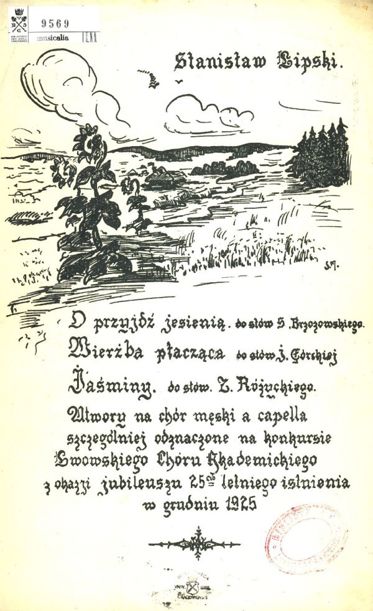 9569
musicalia
Stanisław Lipski.
O przyjdź jesienią. do słów S. Brzozowskiego.
Wierzba płacząca do słów J. Górskiej
Jaśminy. do słów. Z. Różyckiego.
Utwory na chór męski a capella
szczególniej odznaczone na konkursie
Lwowskiego Chóru Akademickiego
z okazji jubileuszu 25cio letniego istnienia
w grudniu 1925